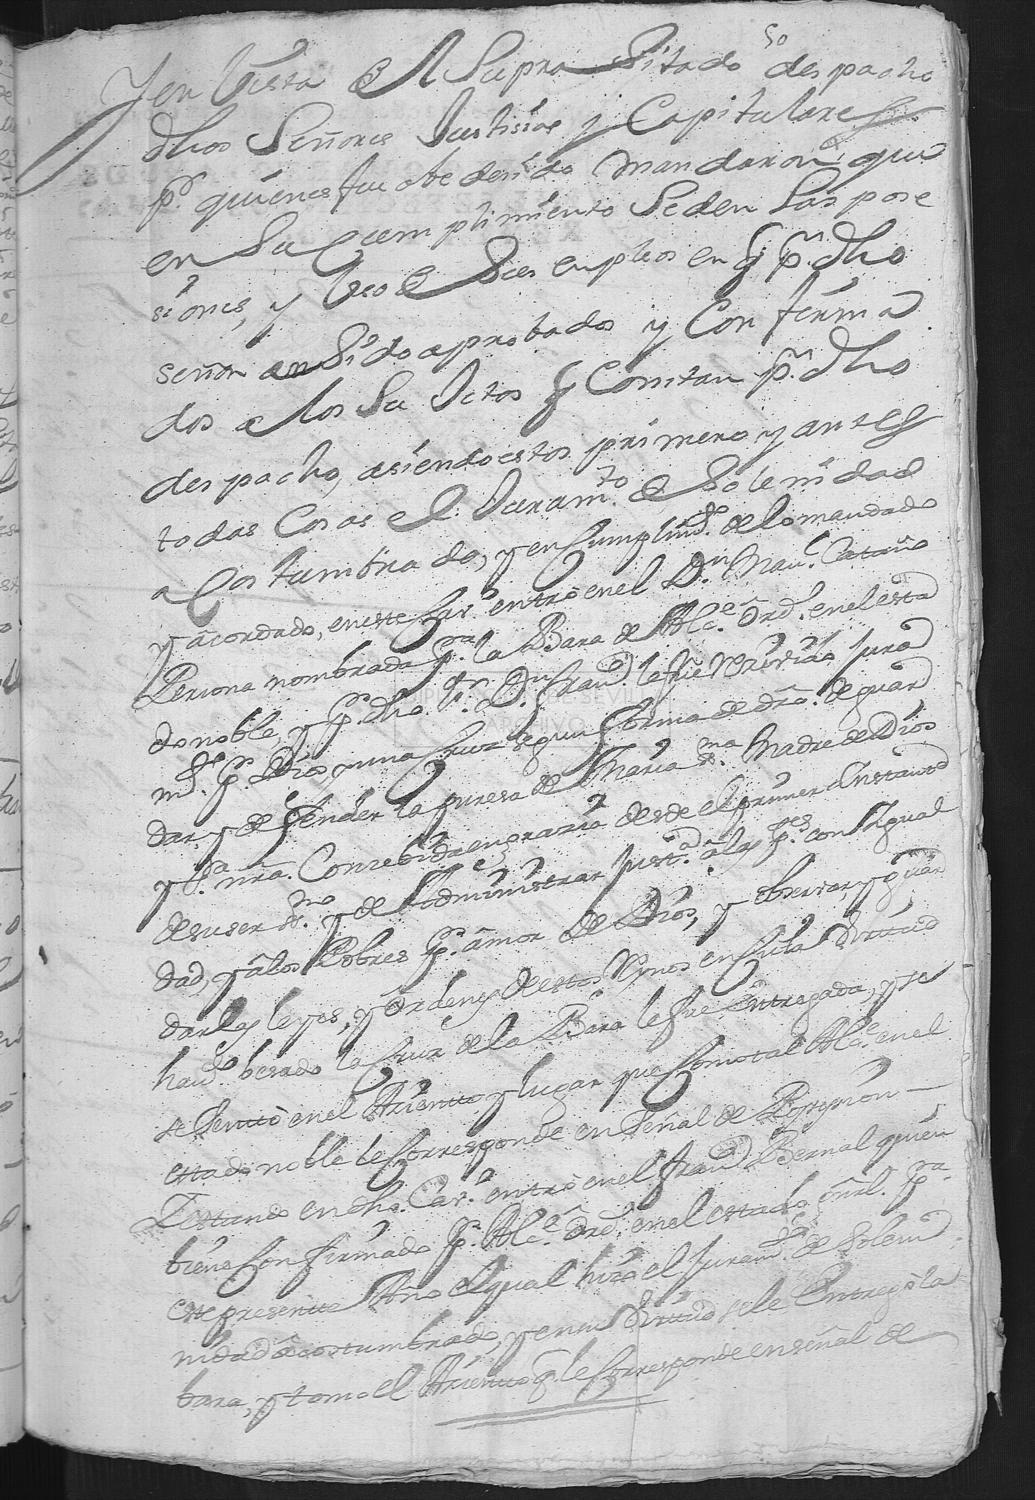 Y en Vista de el Supra Sitado despacho
dhos Señores Justisias y Capitulares
pr. quienes fue obedesido mandaron que
en Su Cumplimiento Se den las pose
siones, y Uso de Sus empleos en q pr. dho
señor an Sido aprobados y Confirma
dos a los Su Jetos q Constan pr. dho
despacho, asiendo estos primero y antes
todas Cosas el Juramto. de Solemnidad
a Costumbrado, y en Cumplimto. de lo mandado
y acordado, en este Cavo. entró en el Dn. Manl. Cataño
Persona nombrada pra. la Bara de Alce. Ordo. en el esta
do noble, y pr. dho Sr. Dn. Franco. le fue resivido Jura
mto. pr. Dios y una Cruz segun forma de dro. de guar
dar y defender la puresa de Maria Sma. Madre de Dios
y Sra. nra. Concebida en grazia desde el primer Instante
de su ser y de Administrar Justa. a las ptes. con Igual
dad, y a los Pobres pr. amor de Dios, y observar, y guar
dar las leyes, y Ordenes de estos Rynos en Cuia Virtud
havdo. besado la Cruz de la Bara le fue Entregada, y se
se Sentó en el Asiento y lugar que Como tal Alce. en el
estado noble le Corresponde en Señal de Posesion
Y estando en dho. Cavo. entró en el Franco. Bernal quien
biene Confirmado pr. Alce. Ordo. en el estado Genrl. pa.
este presente Año el qual hizo el Juramto. de Solem
nidad acostumbrado, y en su Virtud se le Entregó la
bara, y tomo el Asiento q. le Corresponde en señal de